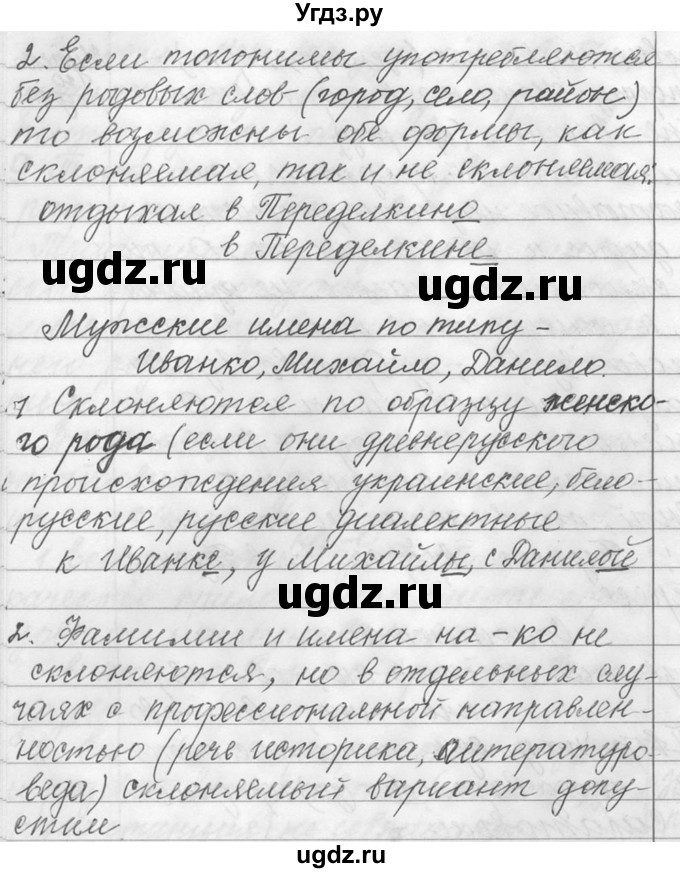 Угдз.ру
2. Если топонимы употребляются
без родовых слов (город, село, район)
то возможны обе формы, как
склоняемая, так и не склоняемая:
отдыхал в Переделкино
в Переделкине
ugdz.ru
ugdz.ru
Мужские имена по типу -
Иванко, Михайло, Данило.
1 Склоняются по образцу женско-
го рода (если они древнерусского
происхождения украинские, бело-
русские, русские диалектные
к Иванке, у Михайлы, с Данилой
ugdz.ru
2. Фамилии и имена на -ко не
склоняются, но в отдельных слу-
чаях с профессиональной направлен-
ностью (речь историка, литературо-
веда) склоняемый вариант допу-
стим
ugdz.ru